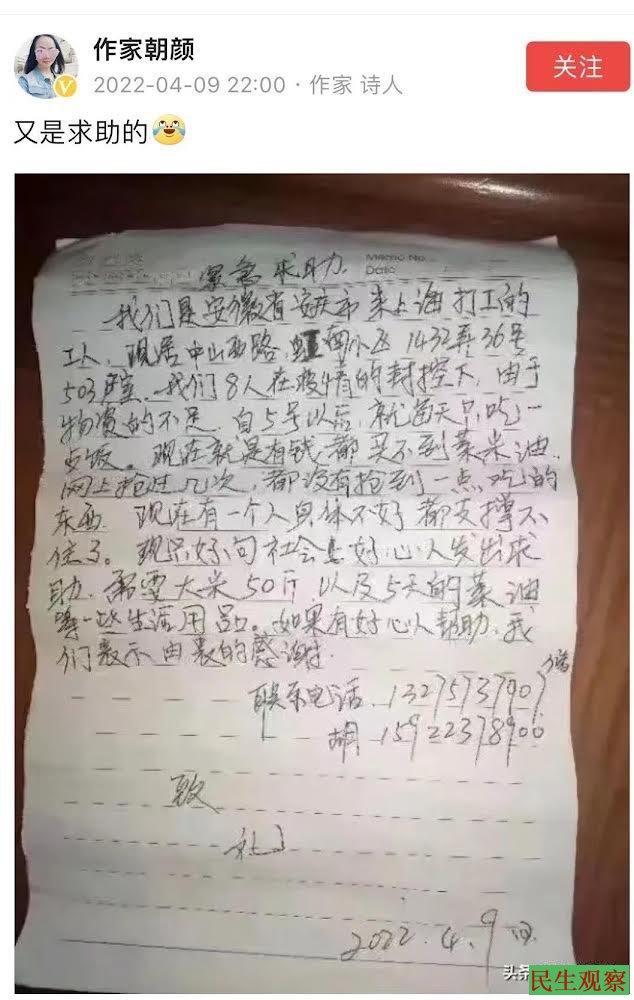 作家朝颜
2022-04-09 22:00 · 作家 诗人
关注
又是求助的
Memo No.
Date
紧急求助
我们是安徽省安庆市来上海打工的
工人、现居中山西路，虹南小区1432弄36号
503室、我们8人在疫情的封控下，由于
物资的不足，自5号以后，就每天只吃一
步饭。现在就是有钱都买不到菜米油
网上抢过几次，都没有抢到一点吃的
东西 现在有一个人身体不好都支撑不
住了。现只好向社会上好心人发出求
助，需要大米50斤，以及5天的菜油
等一些生活用品。如果有好心人帮助，我
们表示由衷的感谢.
联系电话、13275737907
胡 15922378900
致
礼
2022.4.9日
头条
民生观察